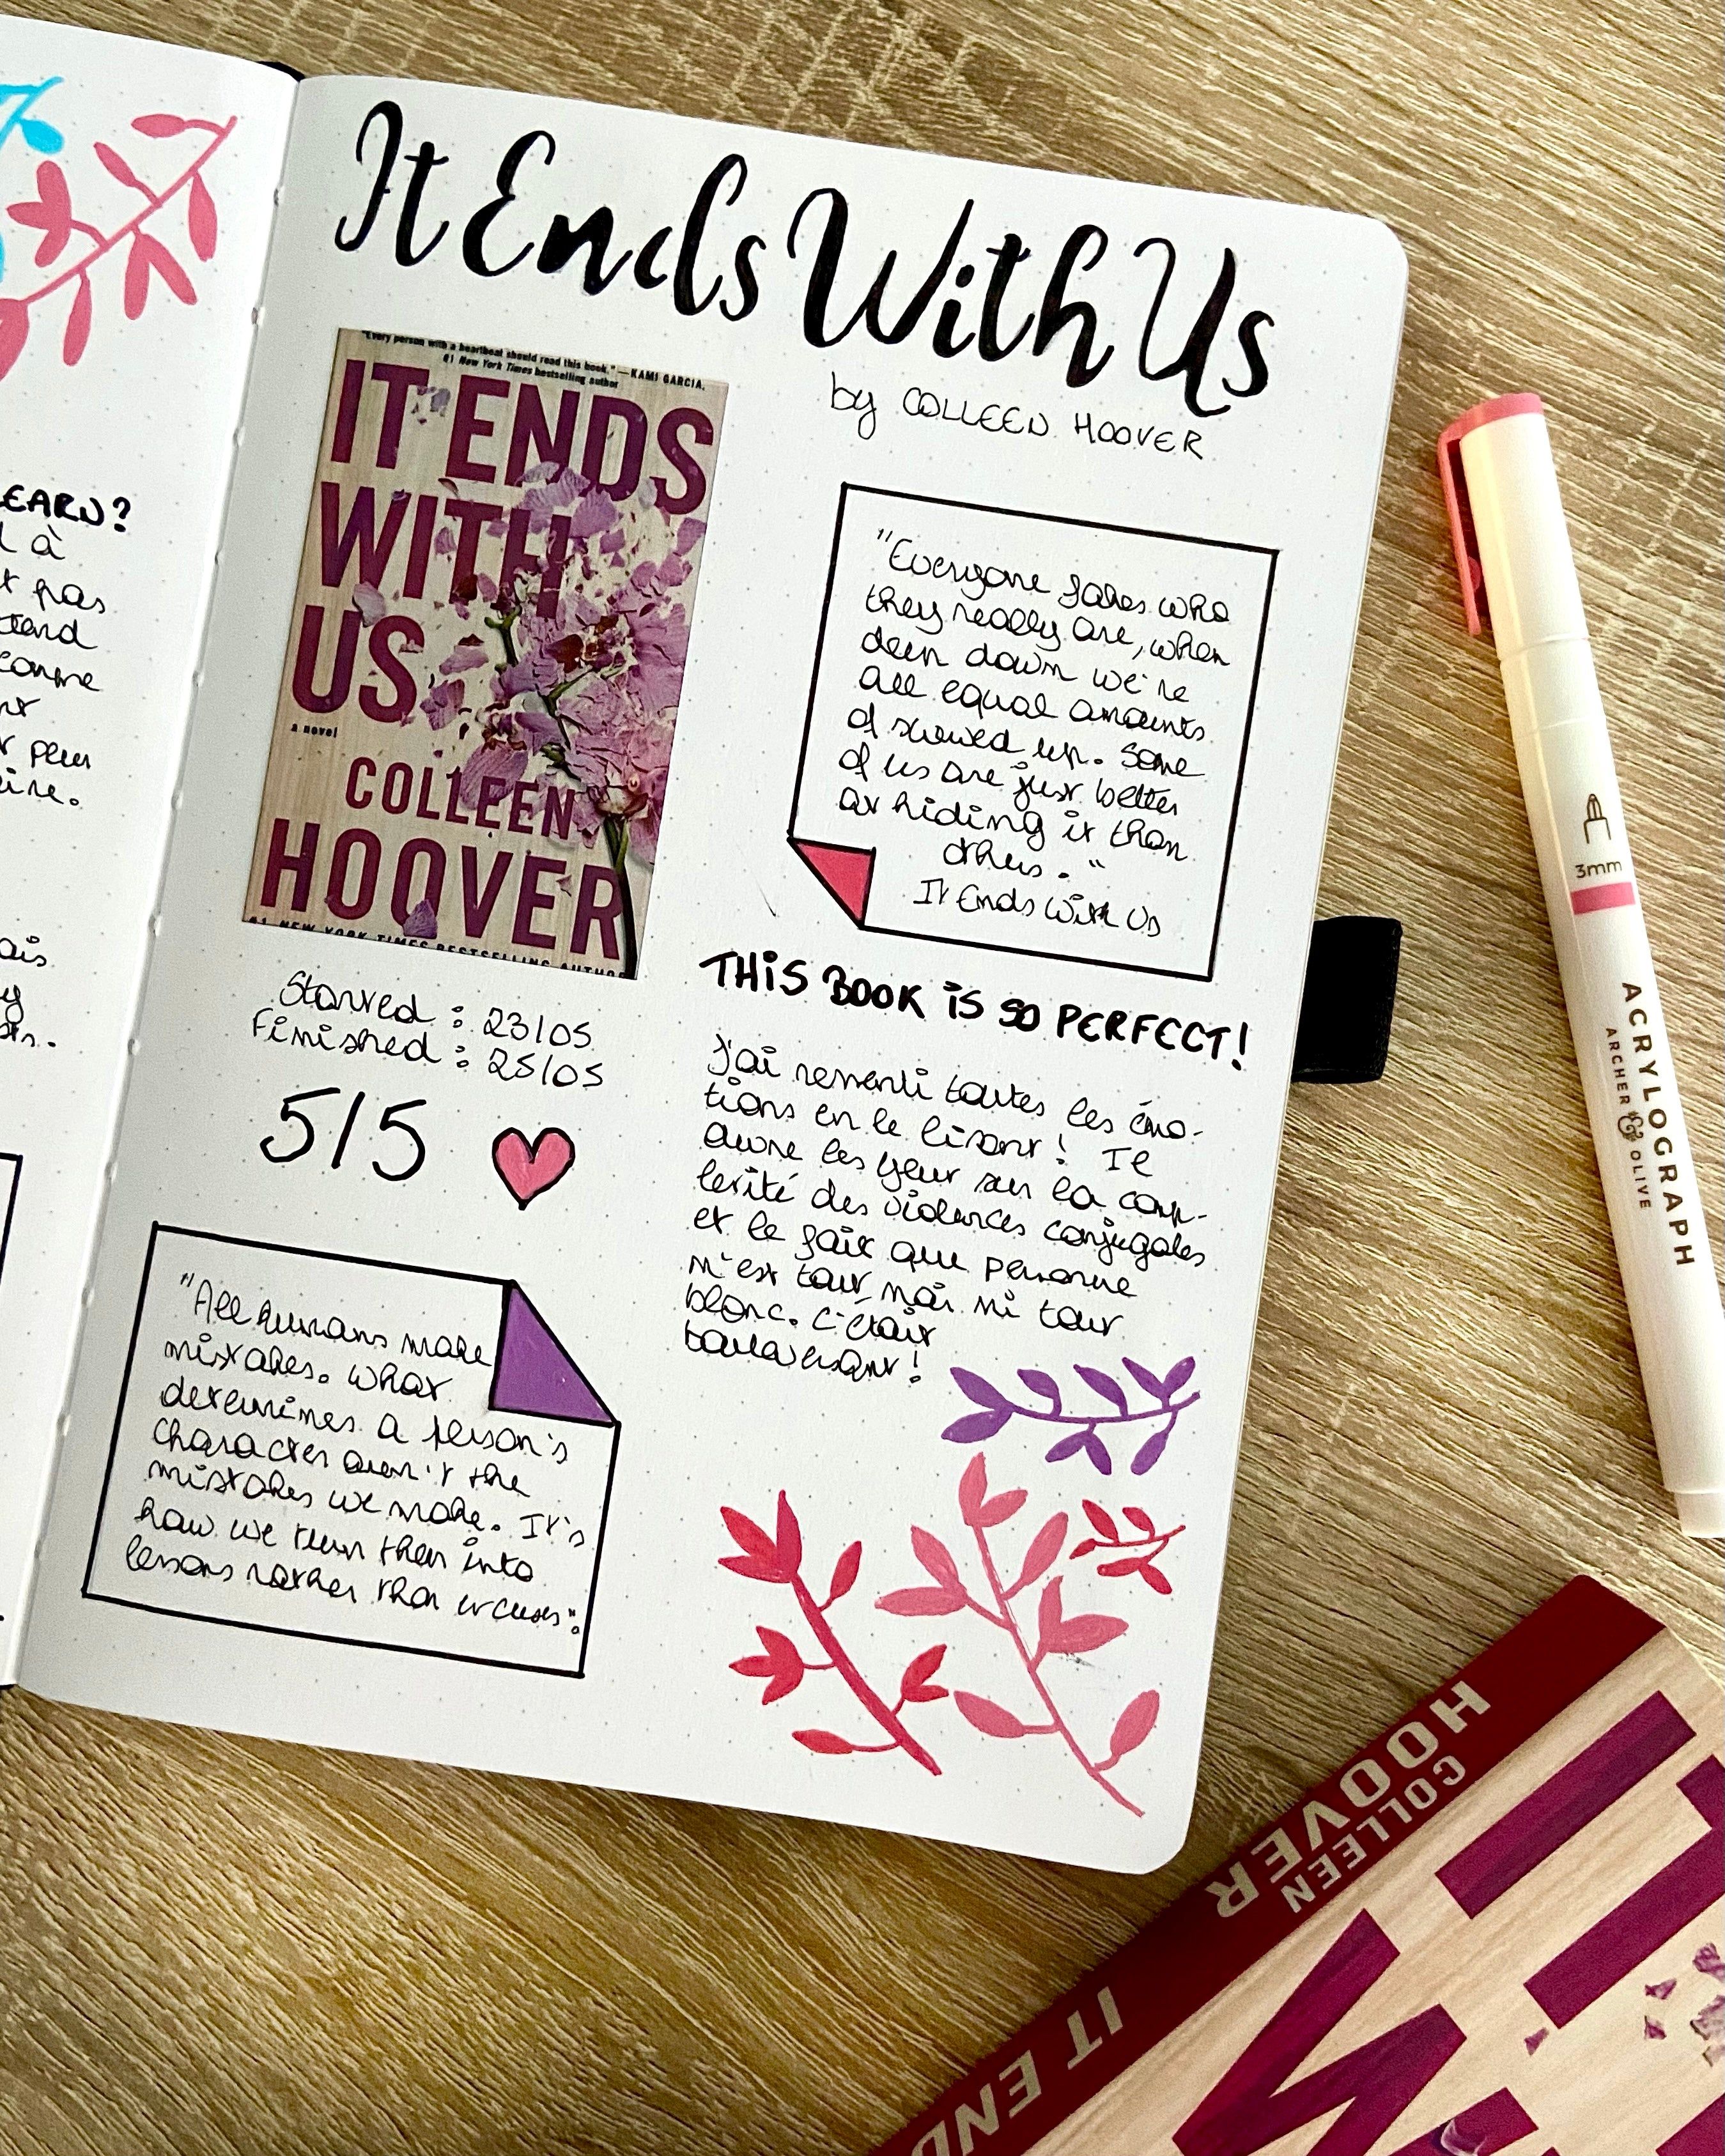 EARN?
à
pas
tend
comme
peu
ire.
ais
It Ends With Us
by COLLEEN HOOVER
"Every person with a heartbeat should read this book." —KAMI GARCIA,
#1 New York Times bestselling author
IT ENDS
WITH
US
a novel
COLLEEN
HOOVER
#1 NEW YORK TIMES BESTSELLING AUTHOR
"Everyone fakes who
they really are, when
deep down we're
all equal amounts
of screwed up. Some
of us are just better
at hiding it than
others."
It Ends With Us
Started : 23/05
Finished : 25/05
5/5
"All humans make
mistakes. What
determines a person's
character aren't the
mistakes we make. It's
how we turn them into
lessons rather than excuses".
THIS BOOK IS SO PERFECT!
J'ai ressenti toutes les émo-
tions en le lisant ! Il
ouvre les yeux sur la comp-
lexité des violences conjugales
et le fait que personne
n'est tout noir ni tout
blanc. C'était
bouleversant !
3mm
ACRYLOGRAPH
ARCHER & OLIVE
COLLEEN
HOOVER
IT END
IT
W